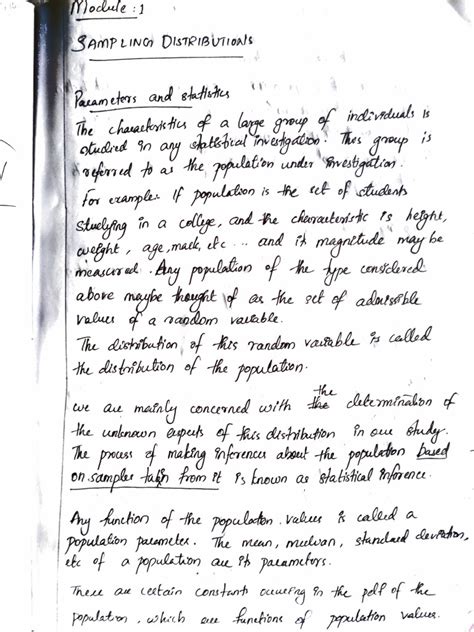 Module : 1
SAMPLING DISTRIBUTIONS
Parameters and statistics
The characteristics of a large group of individuals is
studied in any statistical investigation. This group is
referred to as the population under investigation.
For example: If population is the set of students
studying in a college, and the characteristic is height,
weight, age, mark, etc ... and it magnitude may be
measured. Any population of the type considered
above maybe thought of as the set of admissible
values of a random variable.
The distribution of this random variable is called
the distribution of the population.
the
we are mainly concerned with the determination of
the unknown aspects of this distribution in our study.
The process of making inferences about the population based
on samples taken from it is known as statistical inference.
Any function of the population values is called a
population parameter. The mean, median, standard deviation,
etc of a population are its parameters.
There are certain constants occuring in the pdf of the
population, which are functions of population values.